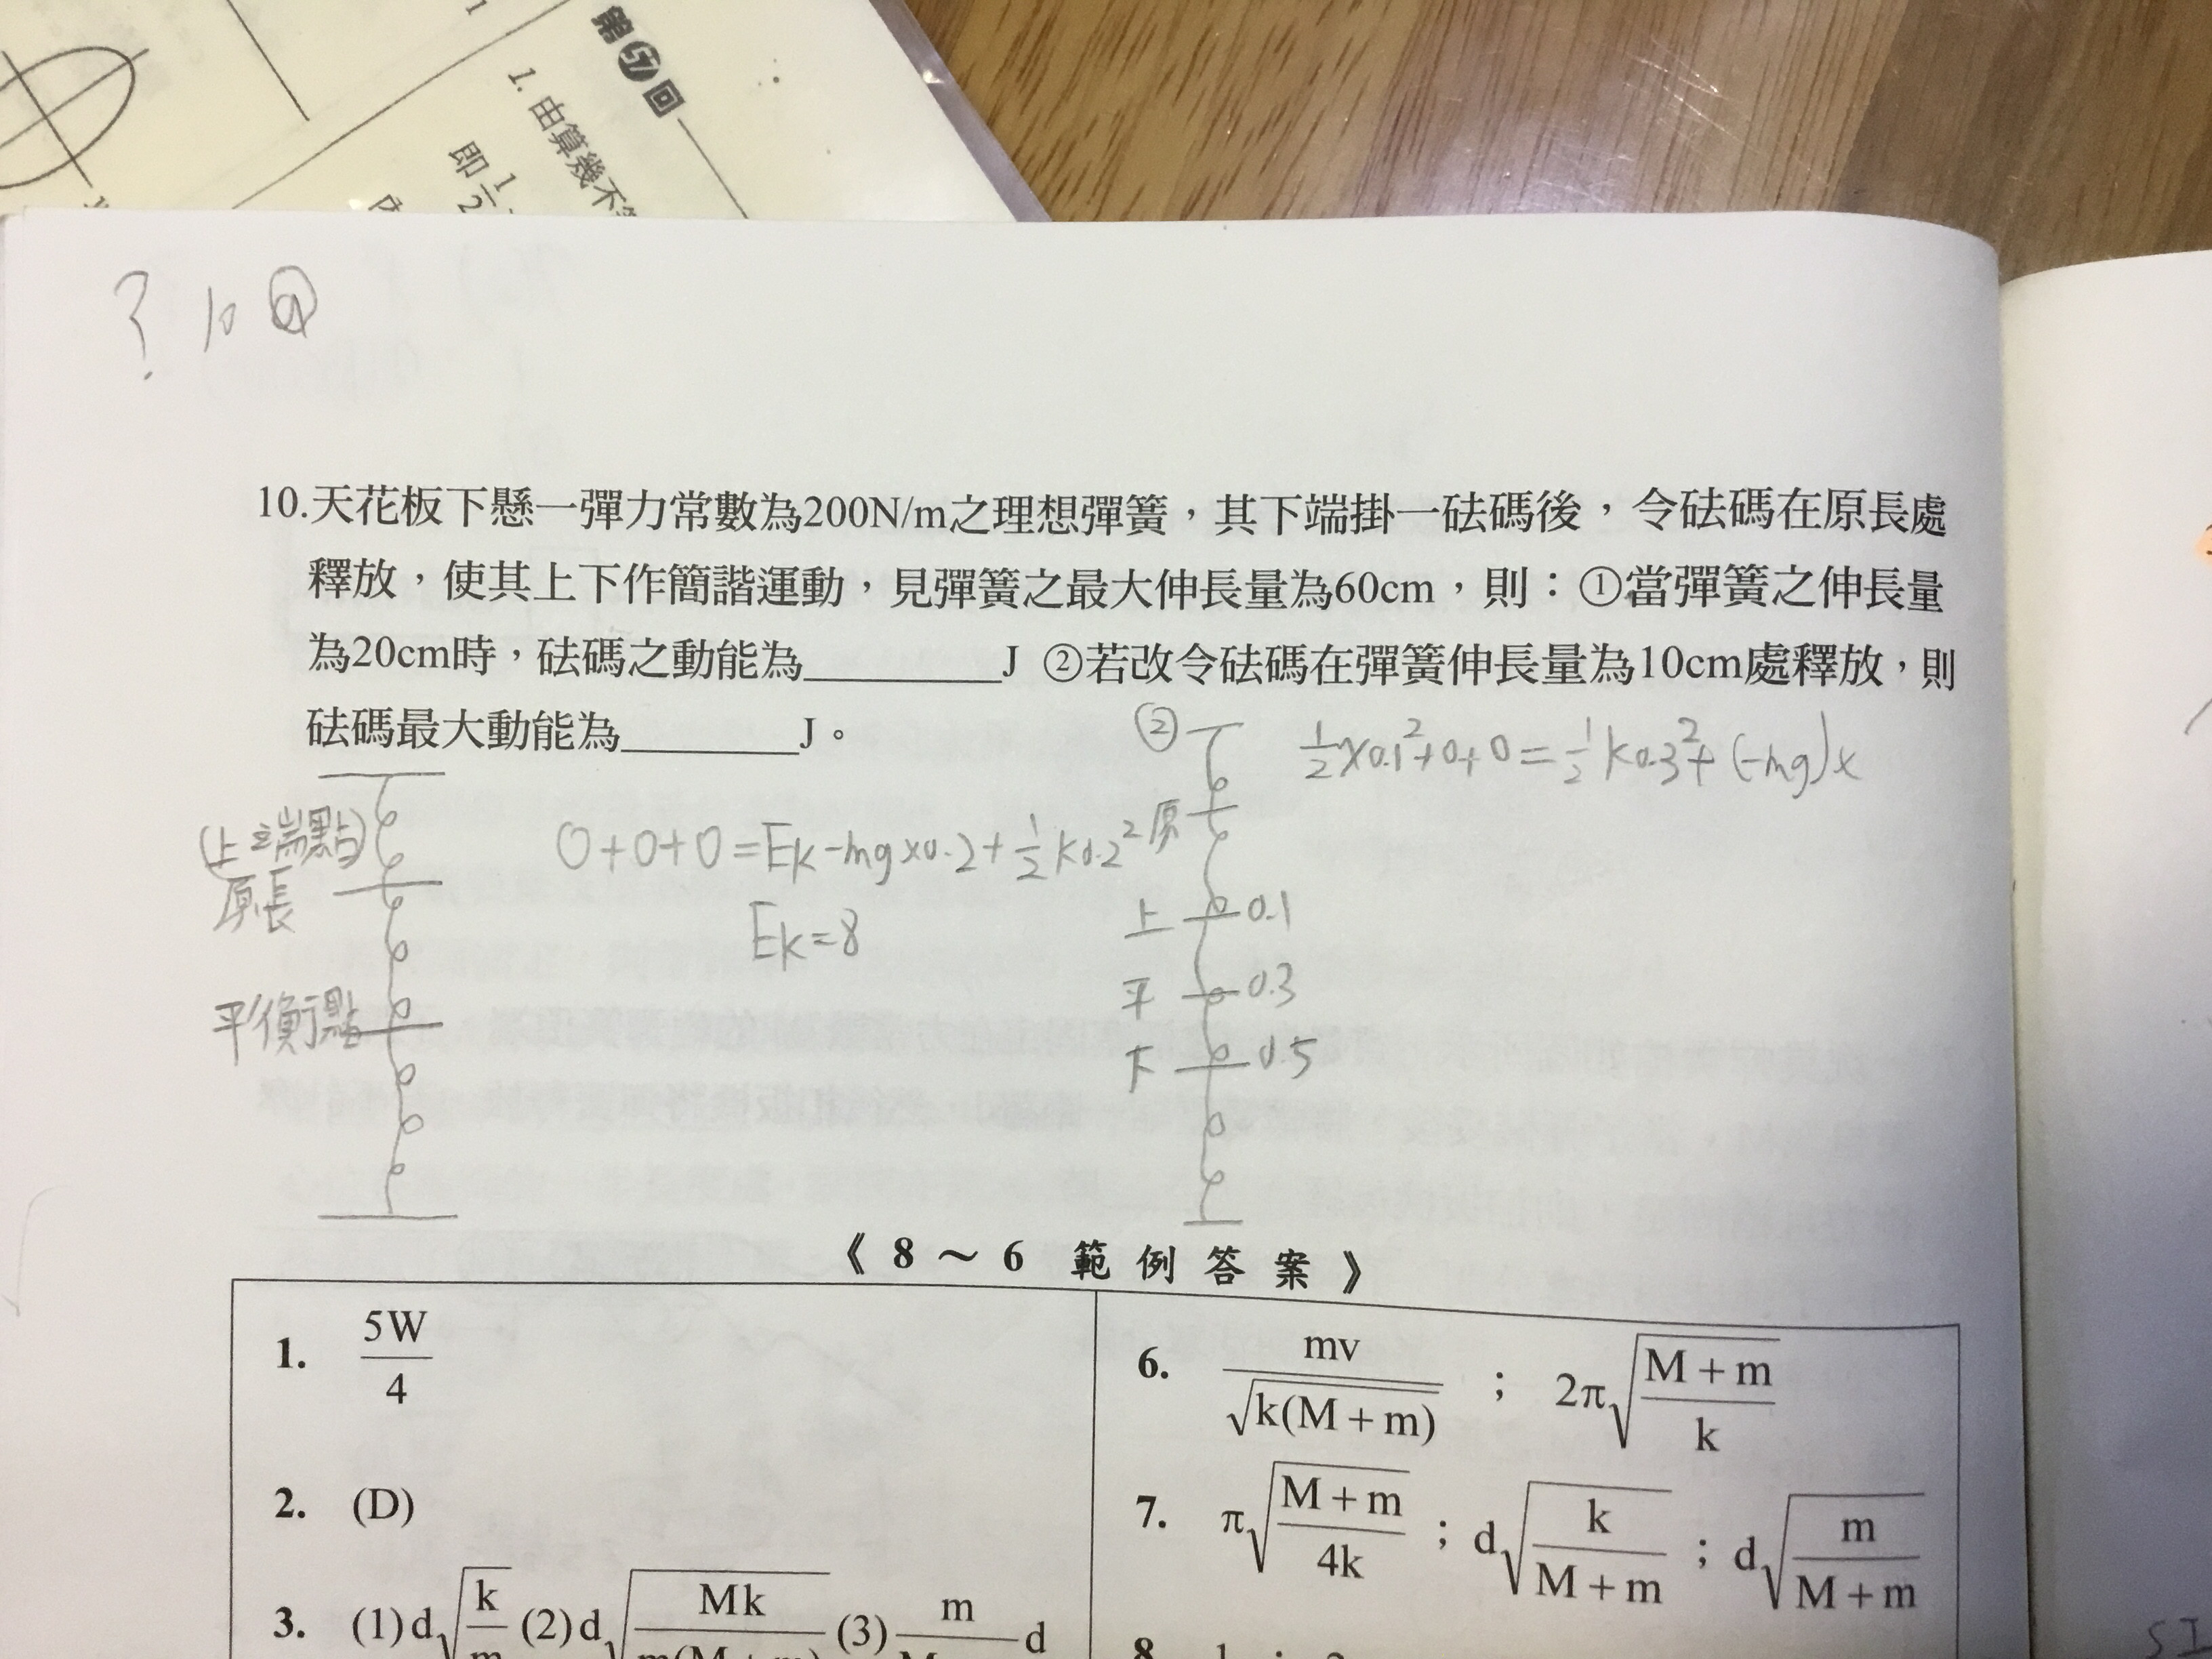 第57回
1. 由算幾不
即 1/2
? 10 ②
10.天花板下懸一彈力常數為200N/m之理想彈簧，其下端掛一砝碼後，令砝碼在原長處
釋放，使其上下作簡諧運動，見彈簧之最大伸長量為60cm，則：①當彈簧之伸長量
為20cm時，砝碼之動能為________J ②若改令砝碼在彈簧伸長量為10cm處釋放，則
砝碼最大動能為________J。
(上端點)
原長
平衡點
0+0+0=Ek-mg×0.2+1/2 k0.2²
Ek=8
②
1/2×0.1²+0+0=1/2 k0.3²+(-mg)x
原
上 0.1
平 0.3
下 0.5
《 8～6 範例答案》
1. 5W/4
2. (D)
3. (1)d√(k/m) (2)d√(Mk/m(M+m)) (3) m/M d
6. mv/√(k(M+m)) ； 2π√((M+m)/k)
7. π√((M+m)/4k) ； d√(k/(M+m)) ； d√(m/(M+m))
8.